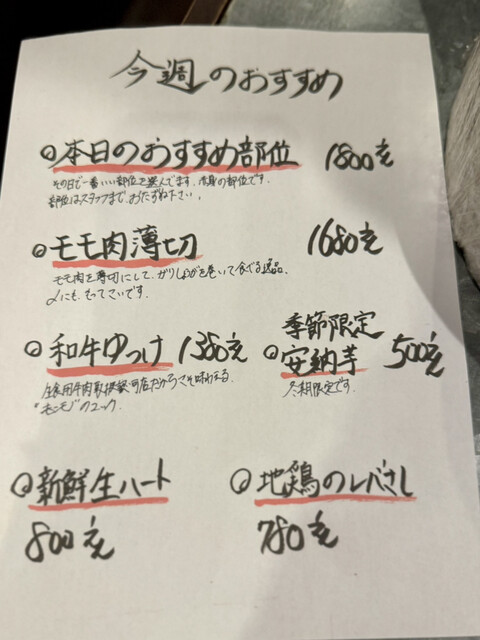 今週のおすすめ
本日のおすすめ部位 1800え
その日で一番いい部位を選んでます。赤身の部位です。
部位はスタッフまで、おたずね下さい。
モモ肉薄切 1680え
モモ肉を薄切にして、がりしょうがを巻いて食べる逸品。
〆にも、もってこいです。
和牛ゆっけ 1380え
生食用牛肉取扱 可店だからこそ味わえる
"モモ" のユッケ
季節限定
安納芋 500え
冬期限定です。
新鮮生ハート
800え
地鶏のレバさし
780え